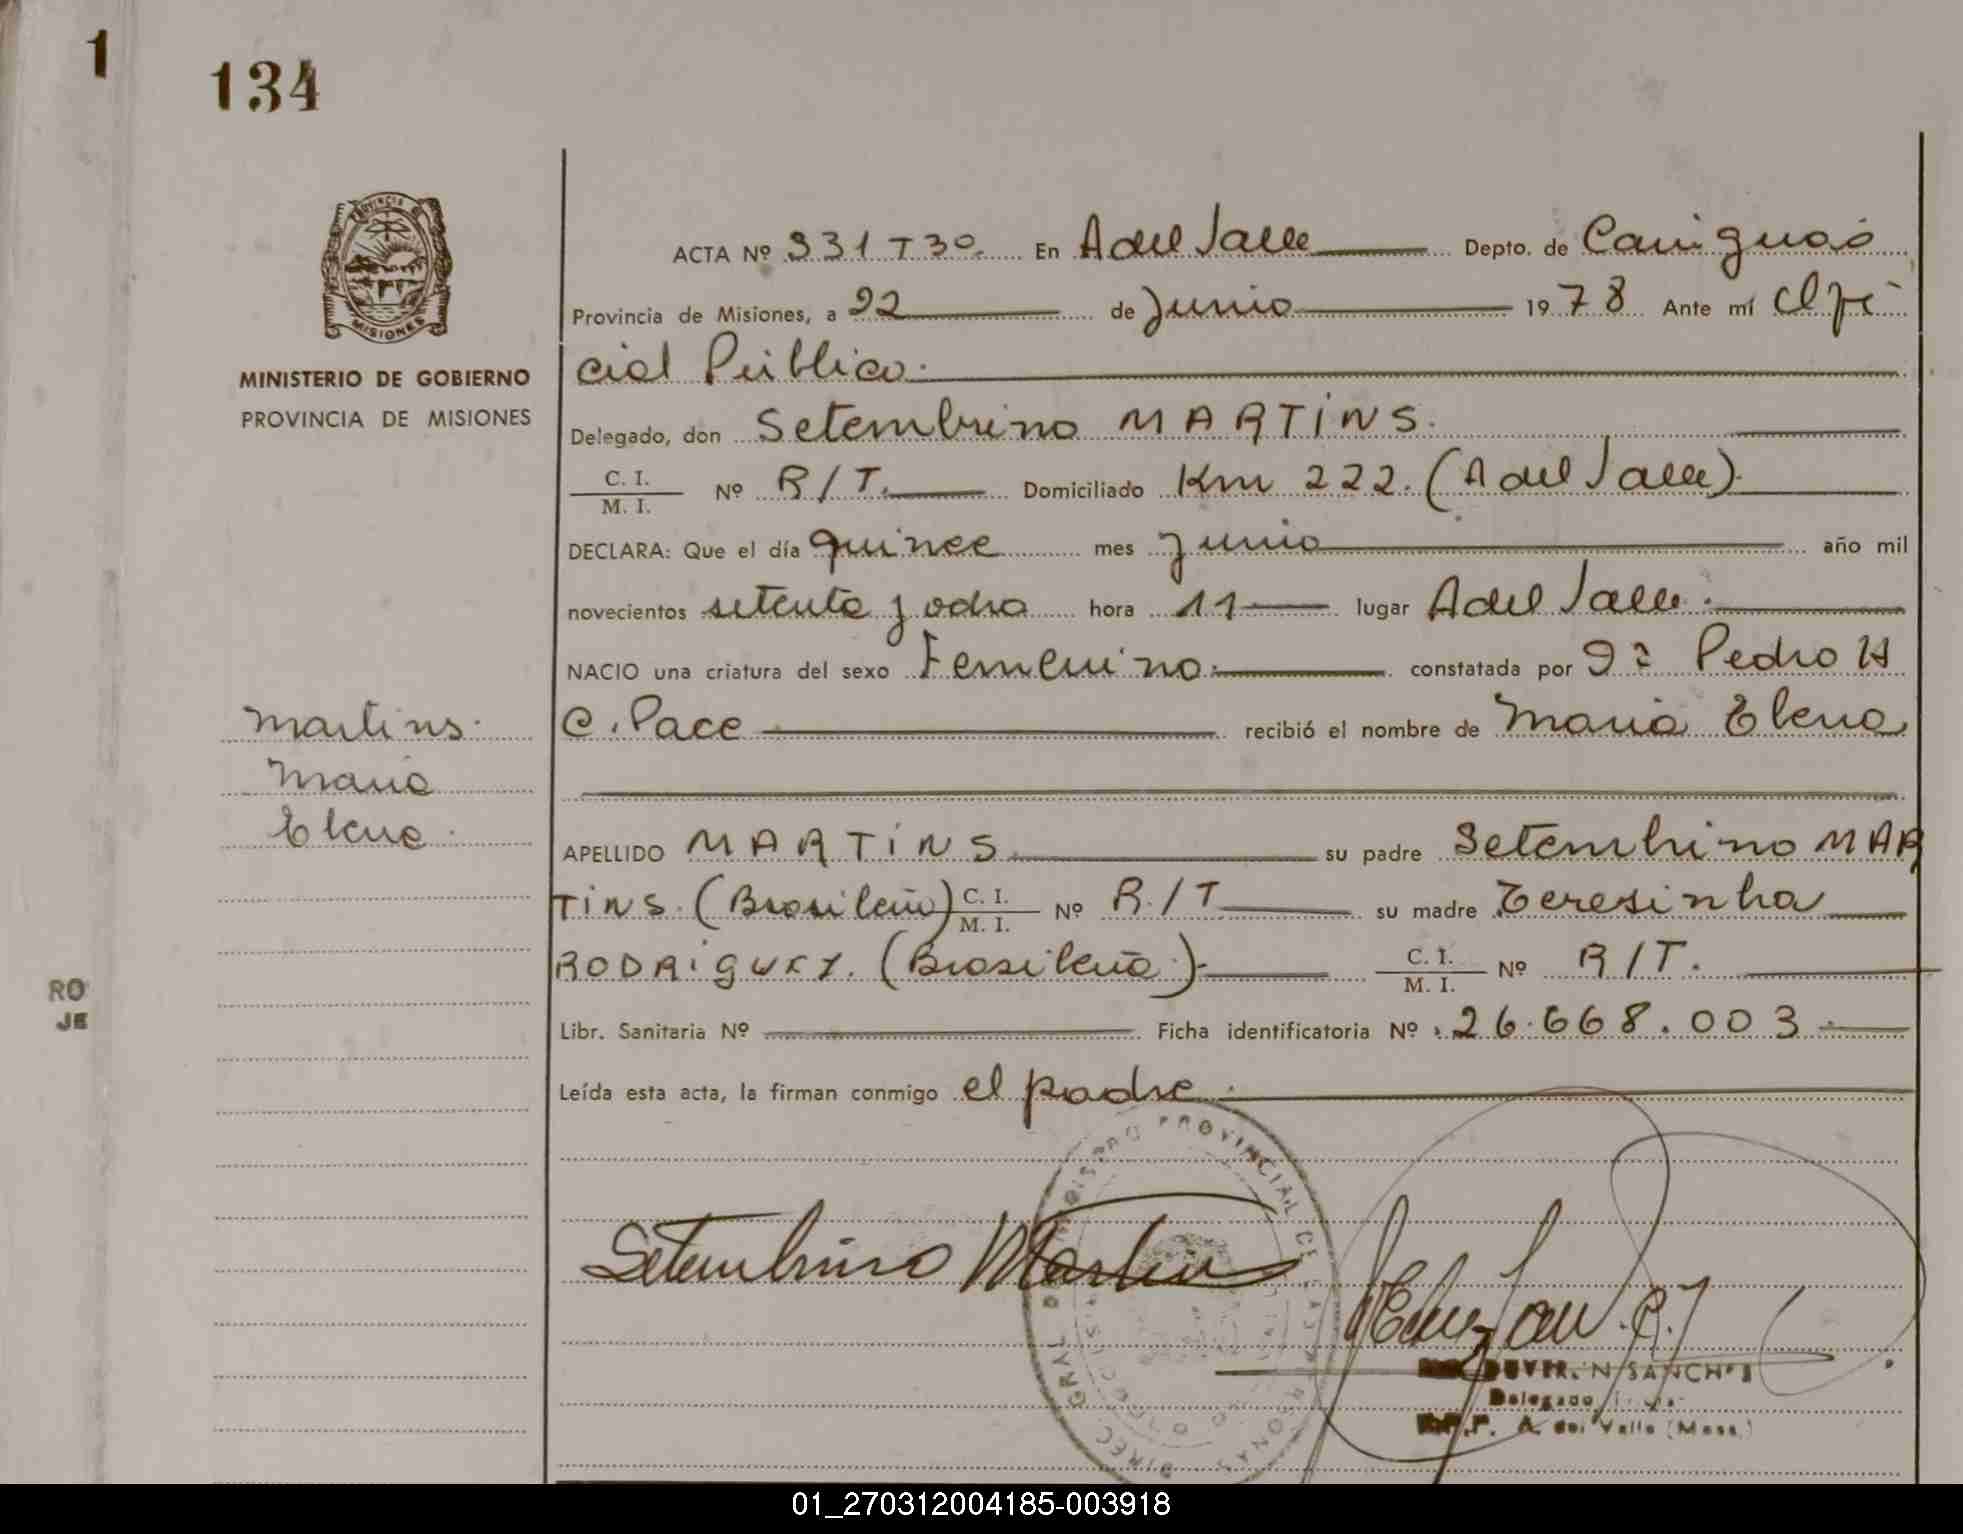 1
134
ACTA Nº 331 T3º En A del Valle Depto. de Cainguás
Provincia de Misiones, a 22 de Junio 1978 Ante mí Ofi
cial Público.
MINISTERIO DE GOBIERNO
PROVINCIA DE MISIONES
Delegado, don Setembrino MARTINS.
C. I.
M. I. Nº R/T. Domiciliado Km 222. (A del Valle).
DECLARA: Que el día quince mes Junio año mil
novecientos setenta y ocho hora 11 lugar A del Valle.
NACIO una criatura del sexo Femenino. constatada por Pedro H
C. Pace recibió el nombre de Maria Elena
Martins.
Maria
Elena.
APELLIDO MARTINS su padre Setembrino MAR
TINS. (Brasileño) C. I.
M. I. Nº R./T su madre Teresinha
RODRIGUEZ. (Brasileña) C. I.
M. I. Nº R/T.
RO
JE
Libr. Sanitaria Nº Ficha identificatoria Nº 26.668.003.
Leída esta acta, la firman conmigo el padre.
Setembrino Martins
SANCHEZ
Delegado
A. del Valle (Mnes.)
01_270312004185-003918